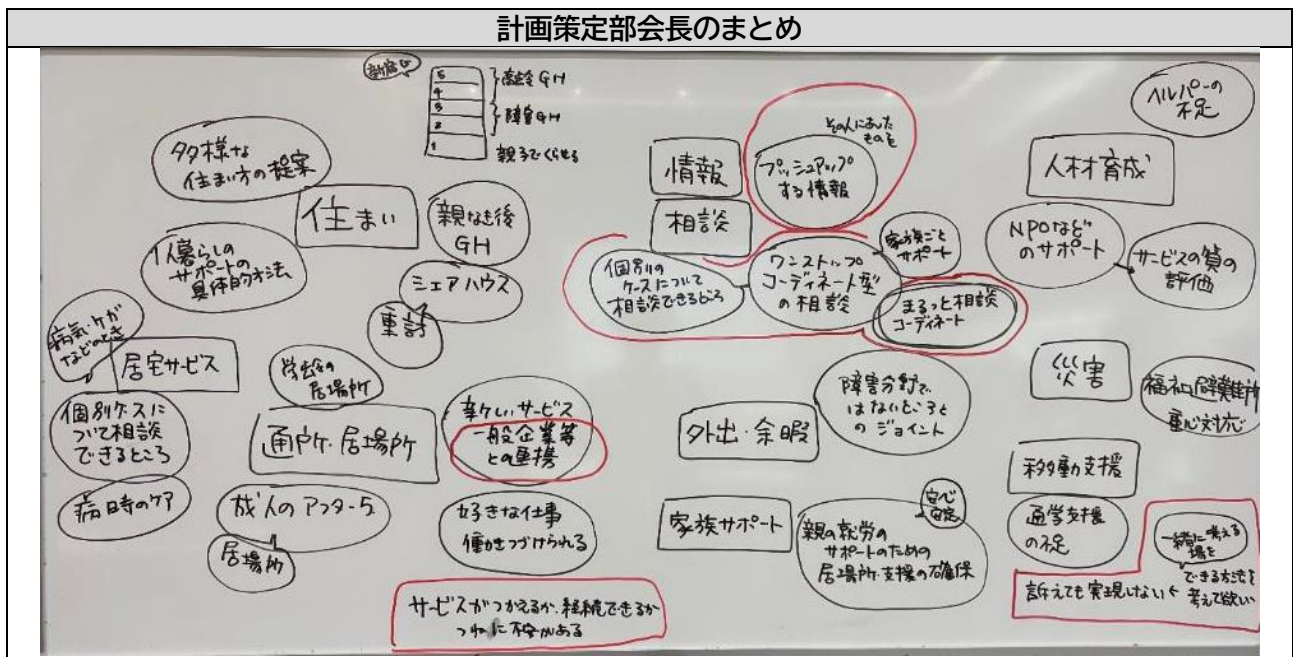 計画策定部会長のまとめ
新宿区
5
4
3
2
1
高齢GH
障害GH
親子でくらせる
多様な
住まい方の提案
住まい
親なき後
GH
1人暮らしの
サポートの
具体的方法、
シェアハウス
重討
病気・ケガ
などのとき
居宅サービス
個別ケースに
ついて相談
できるところ
病時のケア
学齢の
居場所
通所・居場所
成人のアフター5
居場所
新しいサービス
一般企業等
との連携
好きな仕事
働きつづけられる
サービスがつかえるか、継続できるか
つねに不安がある
情報
その人にあった
ものを
プッシュアップ
する情報
相談
個別の
ケースについて
相談できるところ
ワンストップ
コーディネート型
の相談
家族ごと
サポート
まるっと相談
コーディネート
外出・余暇
障害分野で
はないところと
のジョイント
家族サポート
安心
安定
親の就労の
サポートのための
居場所・支援の確保
ヘルパーの
不足
人材育成
NPOなど
のサポート
サービスの質の
評価
災害
福祉避難所
重心対応
移動支援
通学支援
の不足
一緒に考える
場を
できる方法を
考えて欲しい
訴えても実現しない